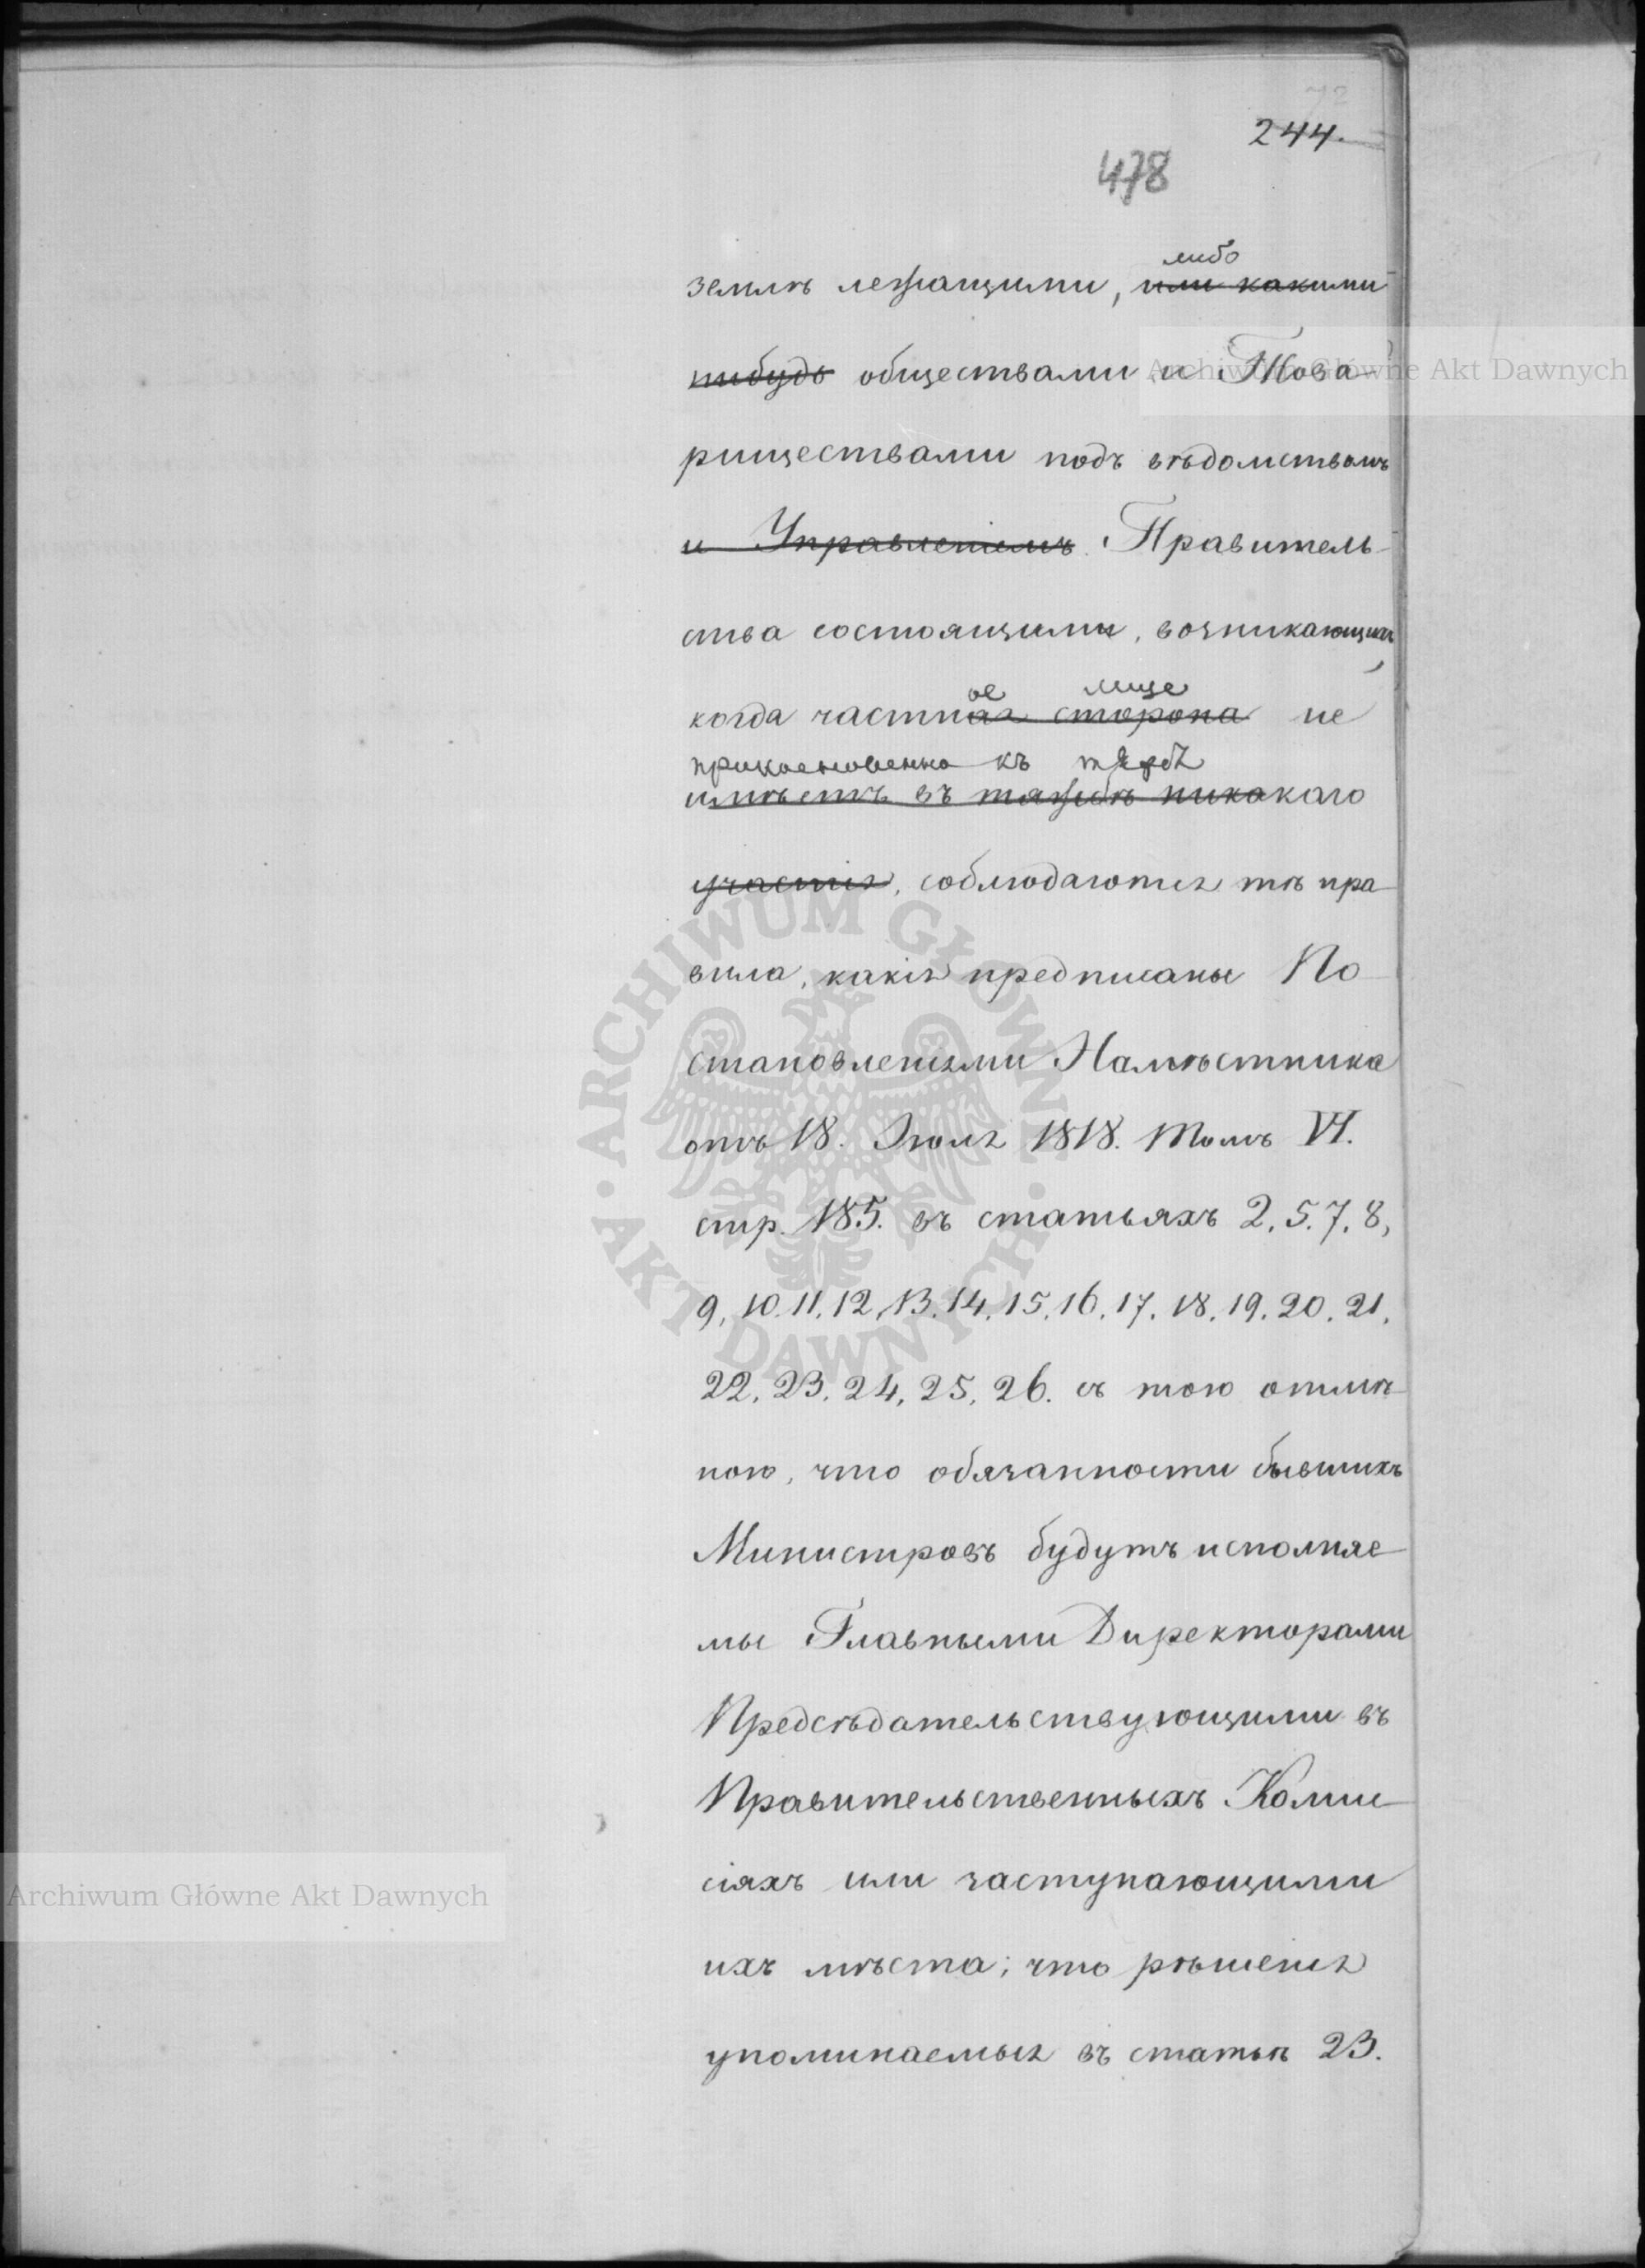 72
244.
478
либо
землѣ лежащими, или какими
нибудь обществами и Това-
риществами подъ вѣдомствомъ
и Управленіемъ Правитель-
ства состоящими, возникающихъ,
ое лице
когда частная сторона не
прикосновенно къ тяжбѣ
имѣетъ въ тяжбѣ никакого
участія, соблюдаются тѣ пра-
вила, какія предписаны По-
становленіями Намѣстника
отъ 18. Іюля 1818. Томъ VI.
стр. 185. въ статьяхъ 2. 5. 7. 8,
9, 10. 11. 12, 13. 14. 15. 16. 17. 18. 19. 20. 21.
22. 23. 24. 25. 26. съ тою отмѣ-
ною, что обязанности бывшихъ
Министровъ будутъ исполняе-
мы Главными Директорами
Предсѣдательствующими въ
Правительственныхъ Комми-
сіяхъ или заступающими
ихъ мѣста; что рѣшенія
упоминаемыя въ статьѣ 23.
Archiwum Główne Akt Dawnych
Archiwum Główne Akt Dawnych
ARCHIWUM GŁÓWNE
AKT DAWNYCH